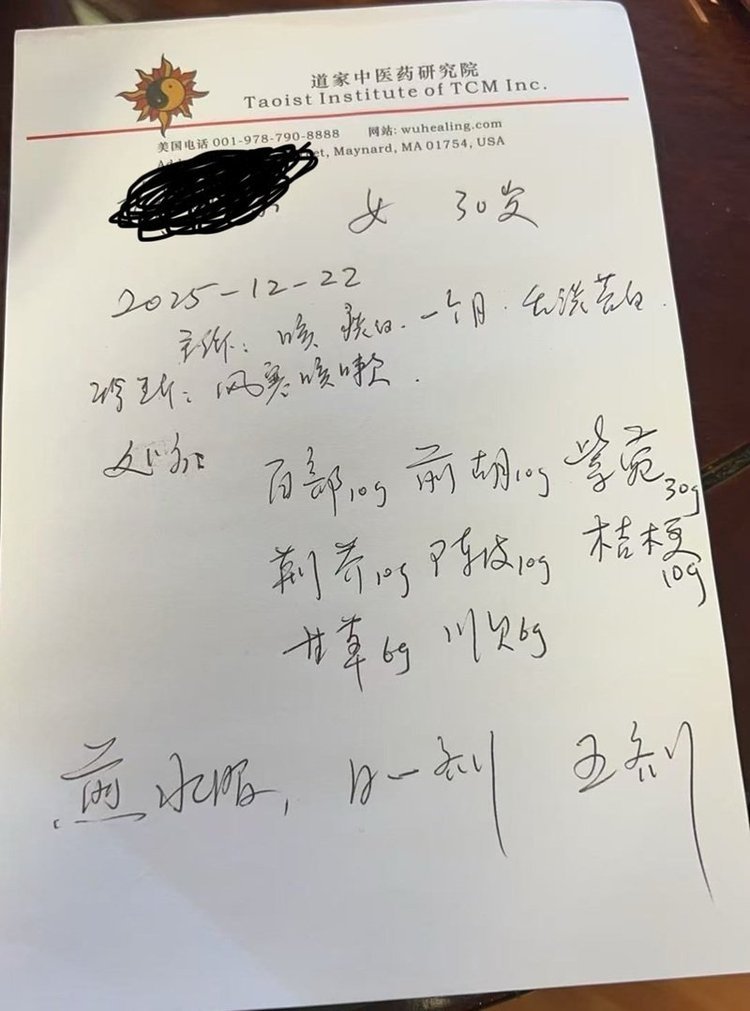 道家中医药研究院
Taoist Institute of TCM Inc.
美国电话 001-978-790-8888 网站: wuhealing.com
et, Maynard, MA 01754, USA
女 30岁
2025-12-22
主诉: 咳 痰白. 一个月. 舌淡苔白.
诊断: 风寒咳嗽.
处方
百部10g 前胡10g 紫菀30g
荆芥10g 陈皮10g 桔梗10g
甘草6g 川贝6g
煎水服, 日一剂 五剂